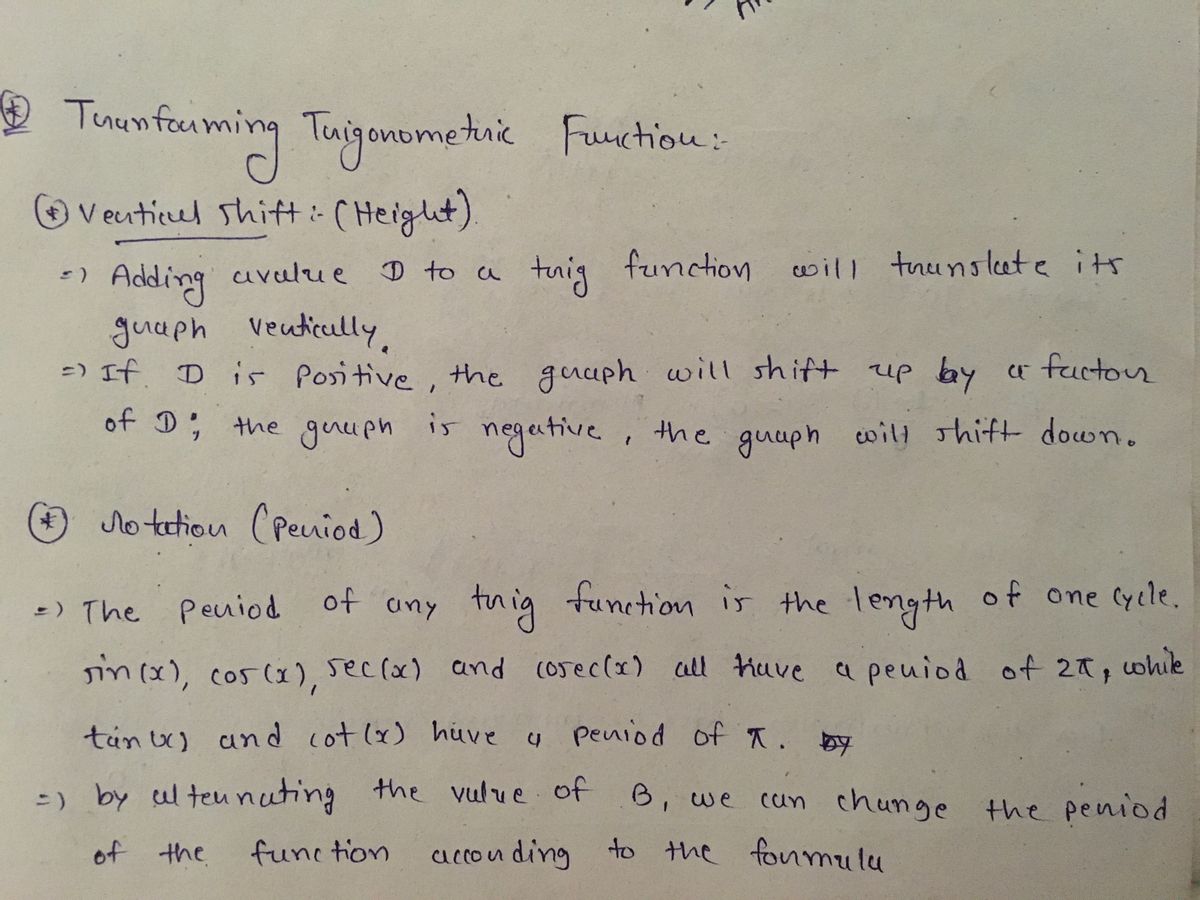 Tranforming Trigonometric Function :-
Vertical shift :- (Height)
=) Adding avalue D to a trig function will translate its
graph vertically.
=) If D is Positive, the graph will shift up by a factor
of D; the graph is negative, the graph will shift down.
rotation (Period)
=) The Period of any trig function is the length of one cycle.
sin(x), cos(x), sec(x) and cosec(x) all have a period of 2π, while
tan(x) and cot(x) have a period of π. by
=) by alternating the value of B, we can change the period
of the function according to the formula